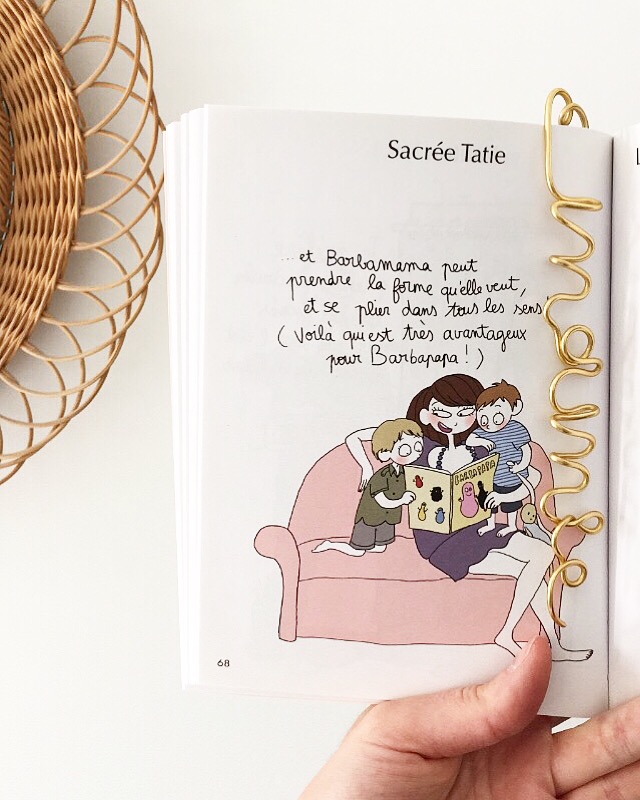 Sacrée Tatie
...et Barbamama peut
prendre la forme qu'elle veut,
et se plier dans tous les sens
(Voilà qui est très avantageux
pour Barbapapa !)
BARBAPAPA
68